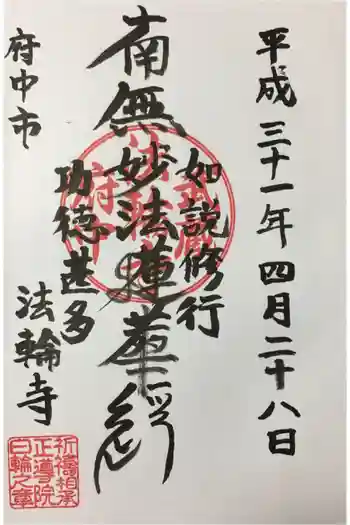 平成三十一年四月二十八日
如説修行
南無妙法蓮華経
功徳甚多
府中市
法輪寺
武蔵
法輪寺
府中
祈祷相承
正導院
日輪之章